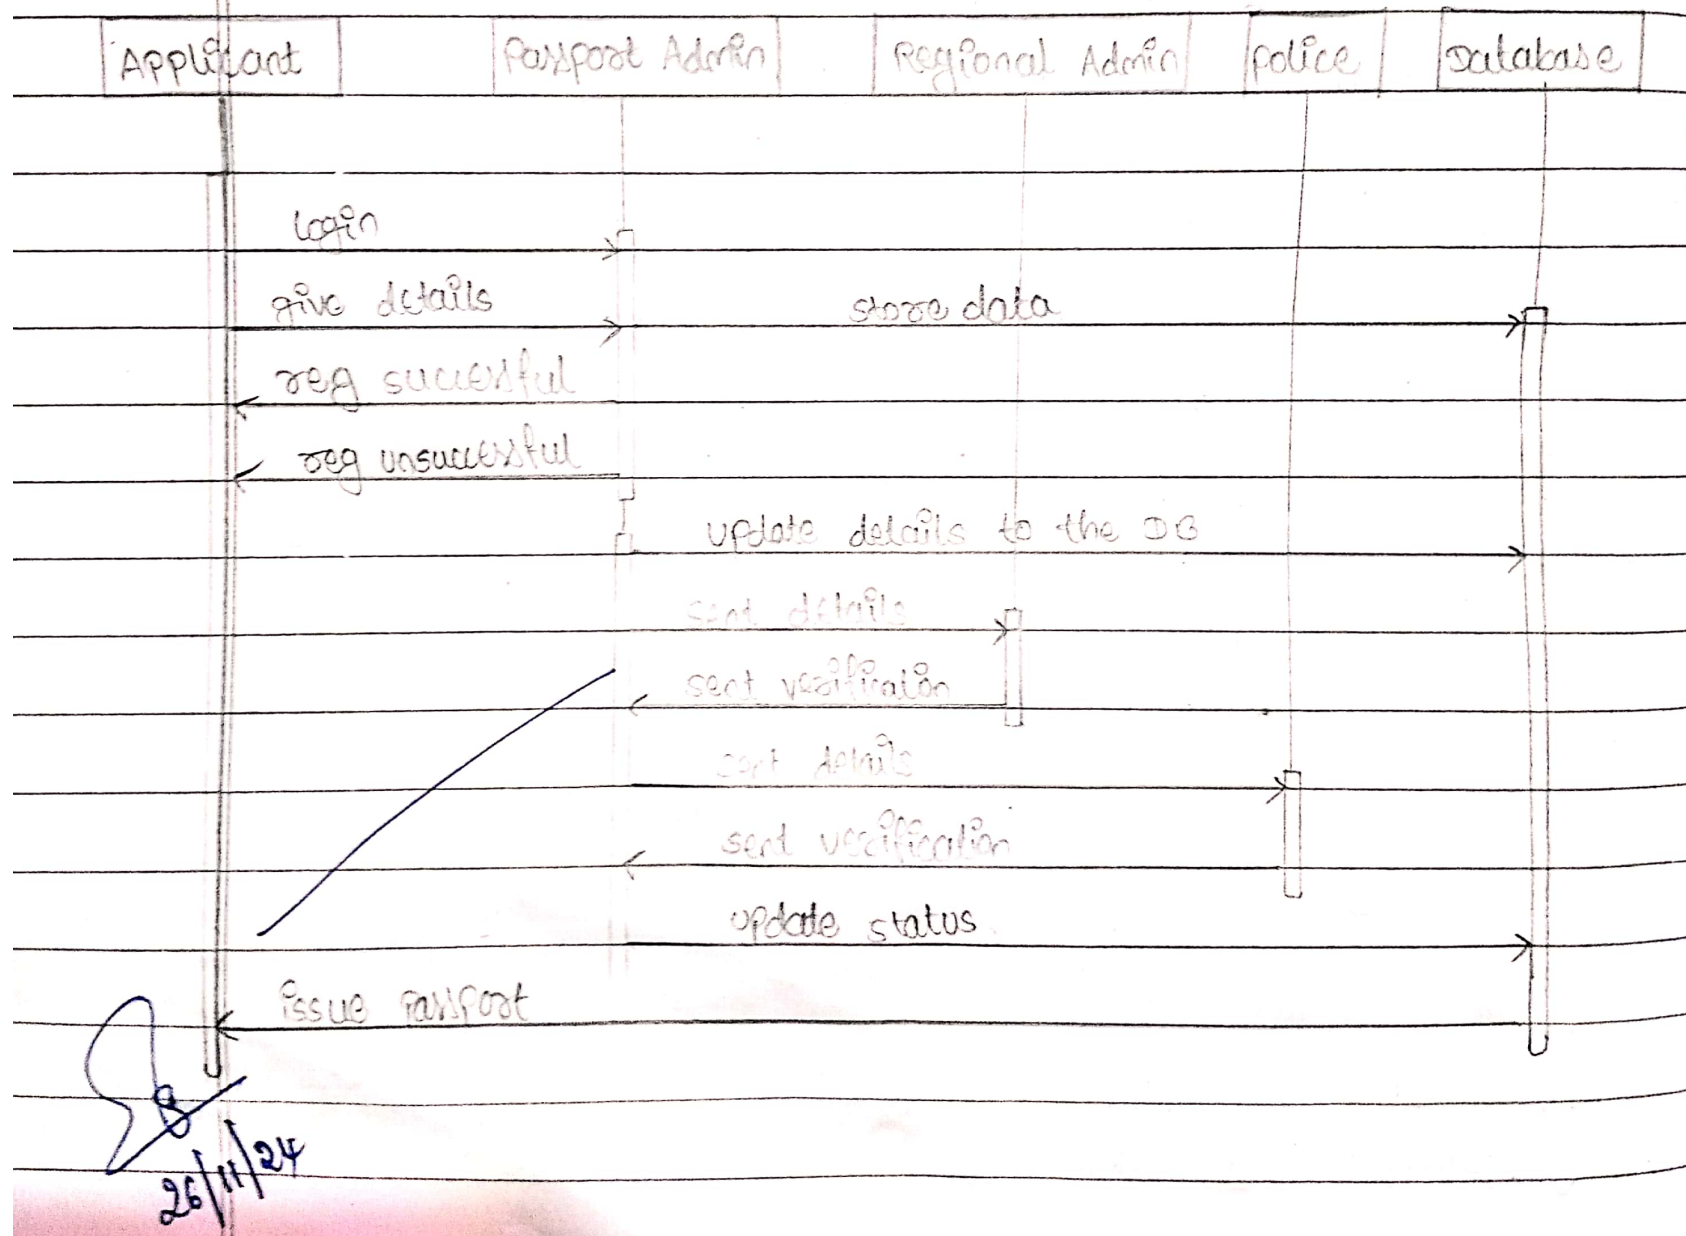 Applicant Passport Admin Regional Admin Police Database
login
give details store data
reg successful
reg unsuccessful
update details to the DB
sent details
sent verificaton
sent details
sent verification
update status
issue Passport
26/11/24